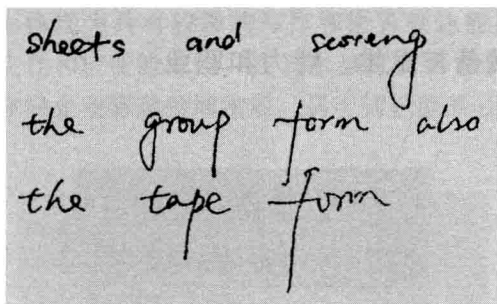 sheets and scoreng
the group form also
the tape form